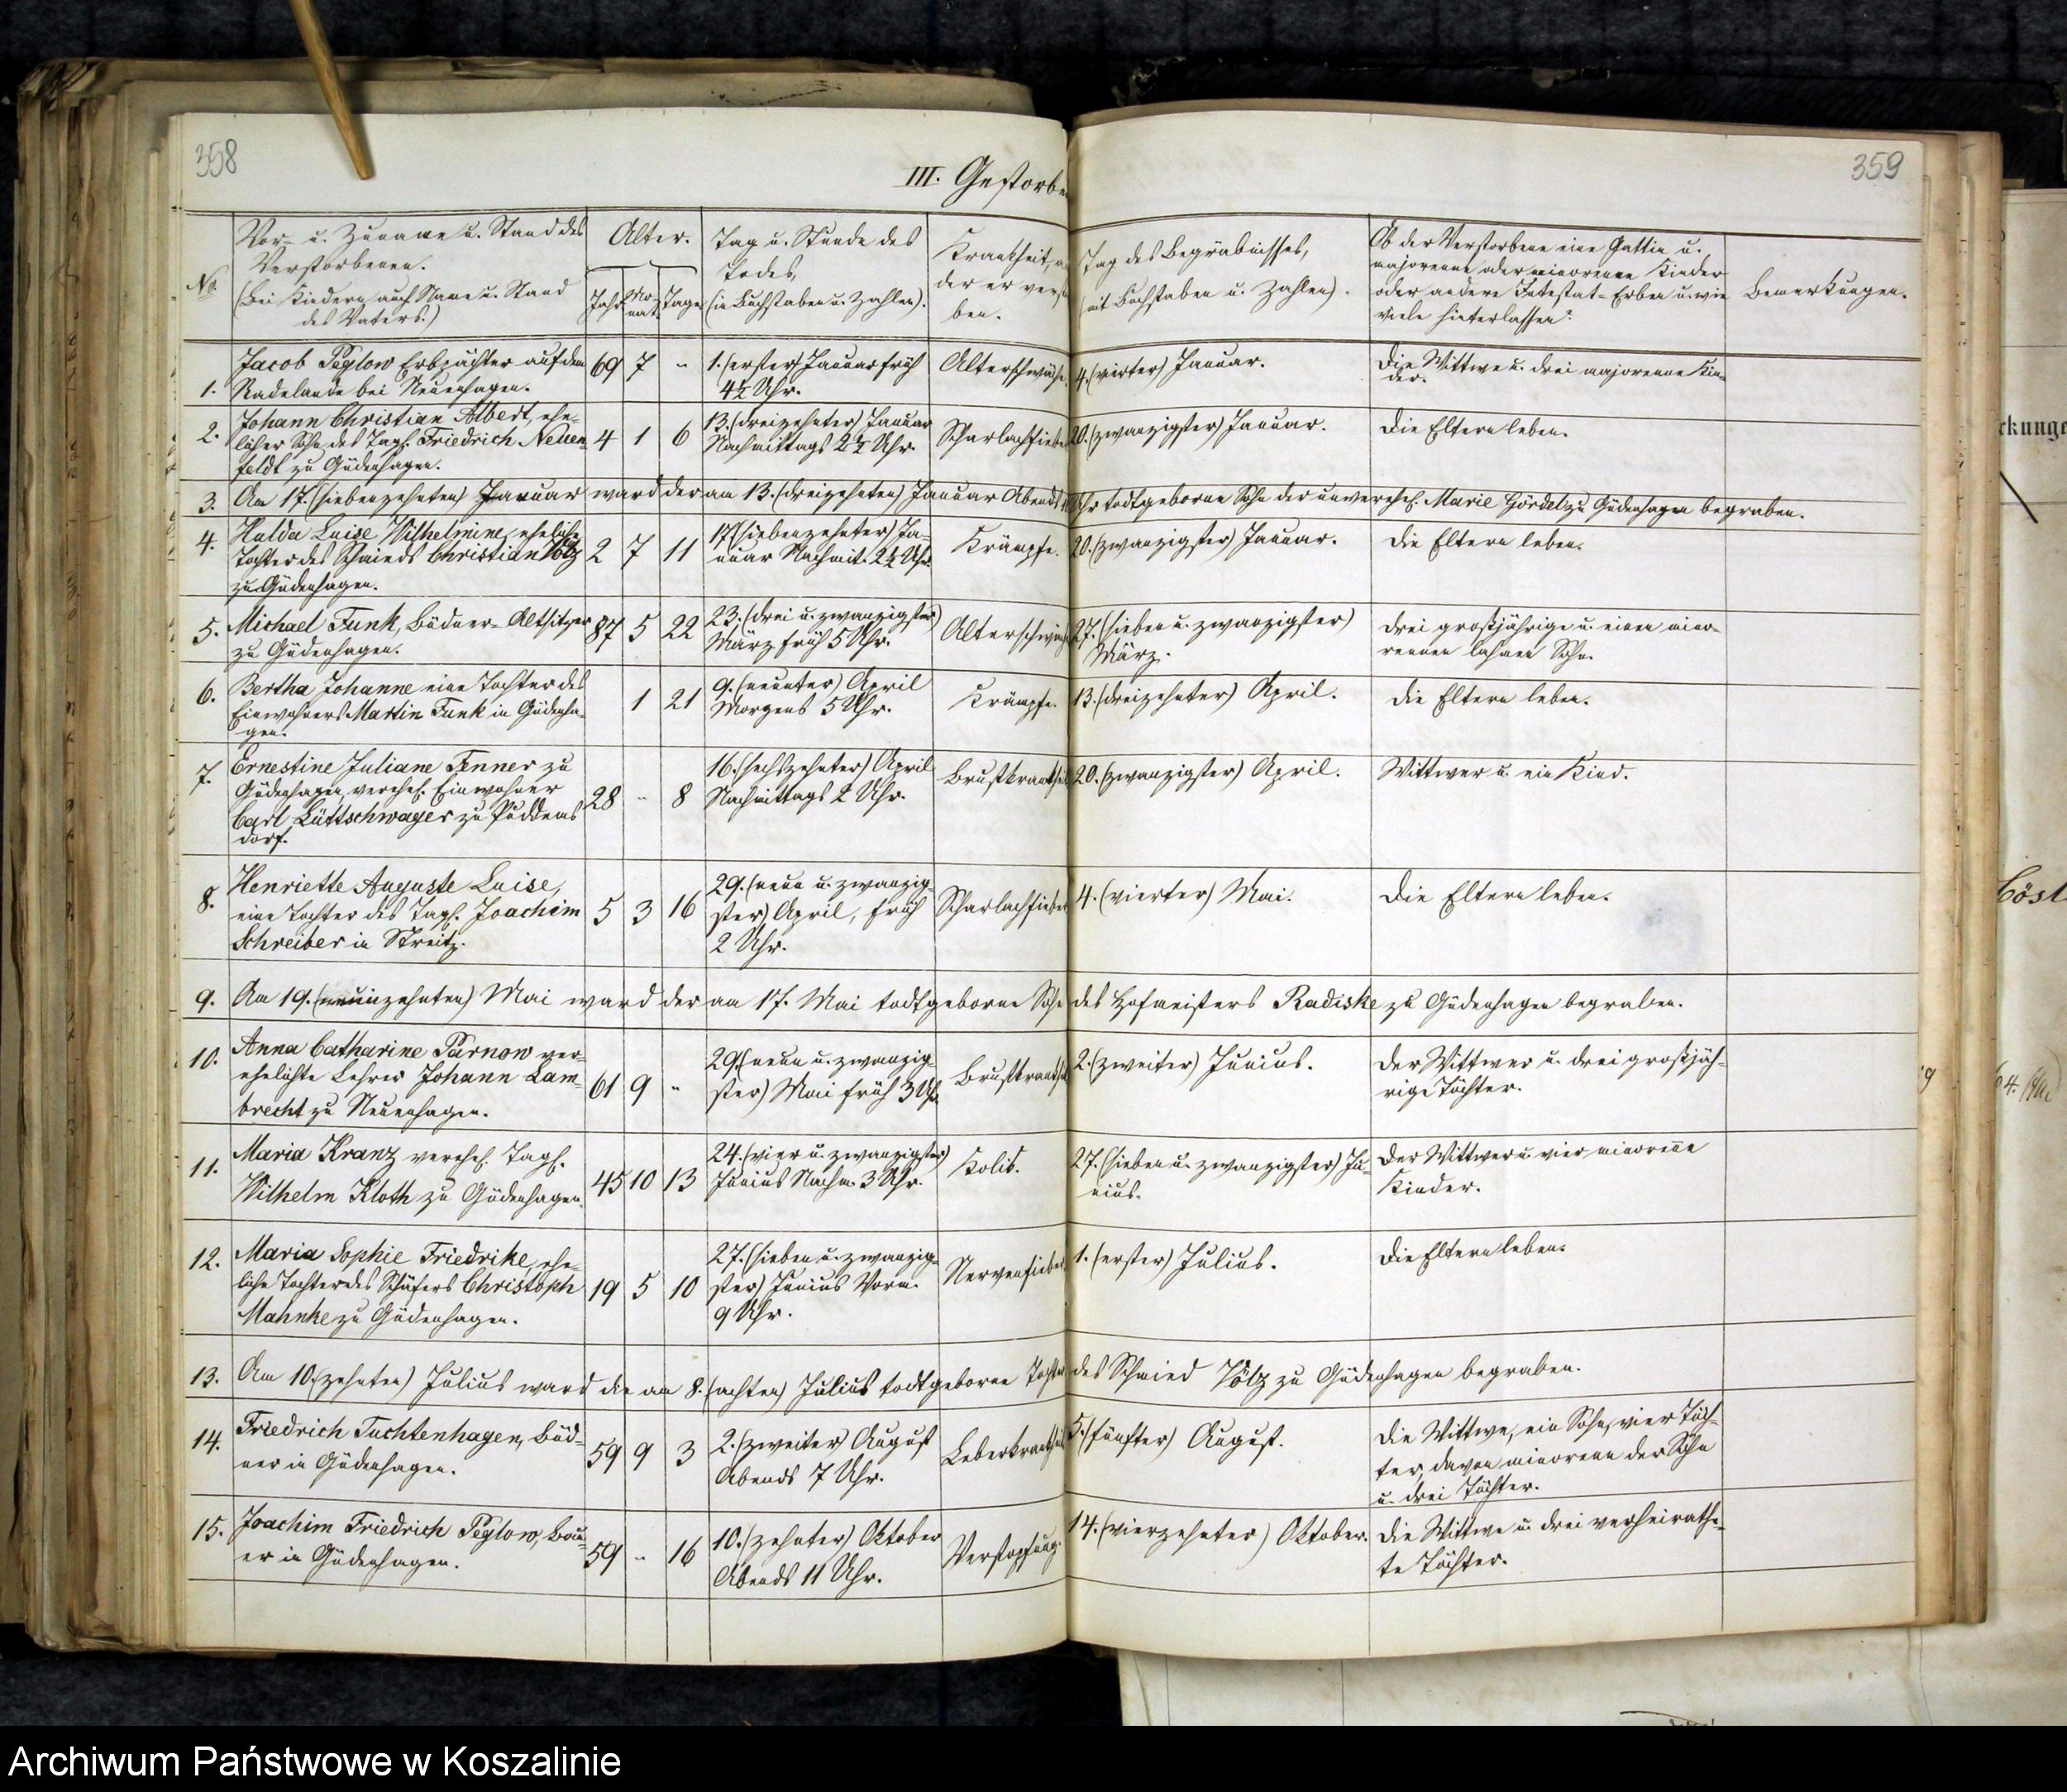 358
359
III. Gestorbe
No.
Vor- u. Zuname u. Stand des
Verstorbenen.
(Bei Kindern auch Name u. Stand
des Vaters.)
Alter.
Jahr
Mo-
nat.
Tage
Tag u. Stunde des
Todes
(in Buchstaben u. Zahlen).
Krankheit, an
der er verst
ben.
Tag des Begräbnisses,
mit Buchstaben u. Zahlen).
Ob der Verstorbene eine Gattin u.
majorenne oder minorenne Kinder
oder andere Intestat-Erben u. wie
viele hinterlassen?
Bemerkungen.
1.
Jacob Peglow Erbpächter auf dem
Radelande bei Neuenhagen.
69 7 "
1. (erster) Januar früh
4½ Uhr.
Altersschwäche.
4. (vierter) Januar.
Die Wittwe u. drei majorenne Kin-
der.
2.
Johann Christian Albert, ehe-
licher Sohn des Tagl. Friedrich Neuen-
feldt zu Güdenhagen.
4 1 6
13. (dreizehnter) Januar
Nachmittags 2½ Uhr.
Scharlachfieber
20. (zwanzigster) Januar.
Die Eltern leben.
3. Am 17. (siebenzehnten) Januar ward der am 13. (dreizehnten) Januar Abends Uhr todtgeborne Sohn der unverehel. Marie Gördel zu Güdenhagen begraben.
4.
Hulda Luise Wilhelmine, eheliche
Tochter des Schmieds Christian Völtz
zu Güdenhagen.
2 7 11
17. (siebenzehnter) Ja-
nuar Nachmit. 2½ Uhr.
Krämpfe.
20. (zwanzigster) Januar.
Die Eltern leben.
5.
Michael Funk, Büdner-Altsitzer
zu Güdenhagen.
87 5 22
23. (drei u. zwanzigster)
März früh 5 Uhr.
Altersschwäche
27. (sieben u. zwanzigster)
März.
Drei großjährige u. einen mino-
rennen lahmen Sohn.
6.
Bertha Johanne eine Tochter des
Einwohners Martin Funk in Güdenha-
gen.
1 21
9. (neunter) April
Morgens 5 Uhr.
Krämpfe.
13. (dreizehnter) April.
Die Eltern leben.
7.
Ernestine Juliane Fenner zu
Güdenhagen verehel. Einwohner
Carl Lüttschwager zu Puddems
dorf.
28 " 8
16. (sechszehnter) April
Nachmittags 2 Uhr.
Brustkrankheit
20. (zwanzigster) April.
Wittwer u. ein Kind.
8.
Henriette Auguste Luise,
eine Tochter des Tagl. Joachim
Schreiber in Streitz.
5 3 16
29. (neun u. zwanzig-
ster) April, früh
2 Uhr.
Scharlachfieber
4. (vierter) Mai.
Die Eltern leben.
9. Am 19. (neunzehnten) Mai ward der am 17. Mai todtgeborne Sohn des Hofmeisters Radiske zu Güdenhagen begraben.
10.
Anna Catharine Parnow ver-
ehelichte Lehrer Johann Lam-
brecht zu Neuenhagen.
61 9 "
29. (neun u. zwanzig-
ster) Mai früh 3 Uhr
Brustkrankheit
2. (zweiter) Junius.
Der Wittwer u. drei großjäh-
rige Töchter.
11.
Maria Kranz verehel. Tagl.
Wilhelm Kloth zu Güdenhagen.
45 10 13
24. (vier u. zwanzigster)
Junius Nachm. 3 Uhr.
Kolik.
27. (sieben u. zwanzigster) Ju-
nius.
Der Wittwer u. vier minorenne
Kinder.
12.
Maria Sophie Friedrike, ehe-
liche Tochter des Schäfers Christoph
Mahnke zu Güdenhagen.
19 5 10
27. (sieben u. zwanzig-
ster) Junius Vorm.
9 Uhr.
Nervenfieber
1. (erster) Julius.
Die Eltern leben.
13. Am 10. (zehnten) Julius ward die am 8. (achten) Julius todtgeborne Tochter des Schmied Völtz zu Güdenhagen begraben.
14.
Friedrich Tuchtenhagen, Büd-
ner in Güdenhagen.
59 9 3
2. (zweiter) August
Abends 7 Uhr.
Leberkrankheit
5. (fünfter) August.
Die Wittwe, ein Sohn, vier Töch-
ter, davon minorenn der Sohn
u. drei Töchter.
15.
Joachim Friedrich Peglow, Bau-
er in Güdenhagen.
59 " 16
10. (zehnter) Oktober
Abends 11 Uhr.
Verstopfung.
14. (vierzehnter) Oktober.
Die Wittwe u. drei verheirathe-
te Töchter.
rkunge
Cösl
Archiwum Państwowe w Koszalinie